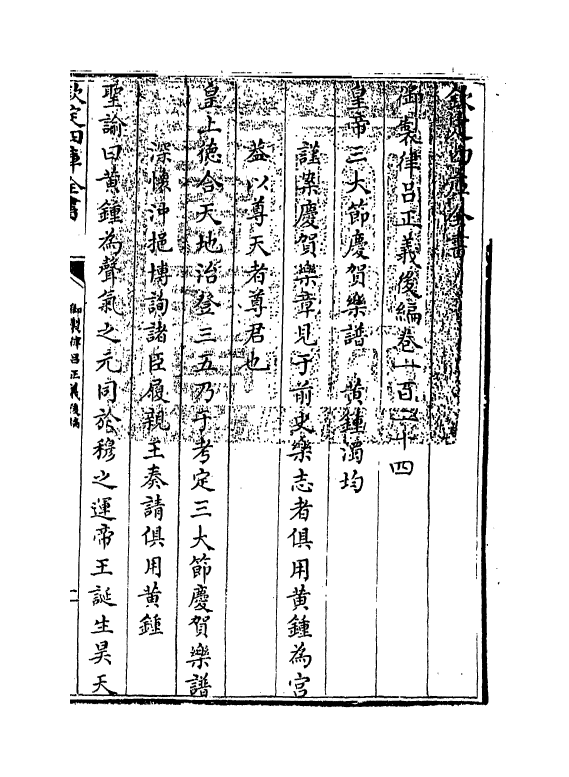 欽定四庫全書
御製律呂正義後編卷一百二十四
皇帝三大節慶賀樂譜 黃鍾濁均
謹案慶賀樂章見于前史樂志者俱用黃鍾為宮
益以尊天者尊君也
皇上德合天地治登三五乃于考定三大節慶賀樂譜
深懷沖挹博詢諸臣履親王奏請俱用黃鍾
聖諭曰黃鍾為聲氣之元同於穆之運帝王誕生昊天
欽定四庫全書
御製律呂正義後編